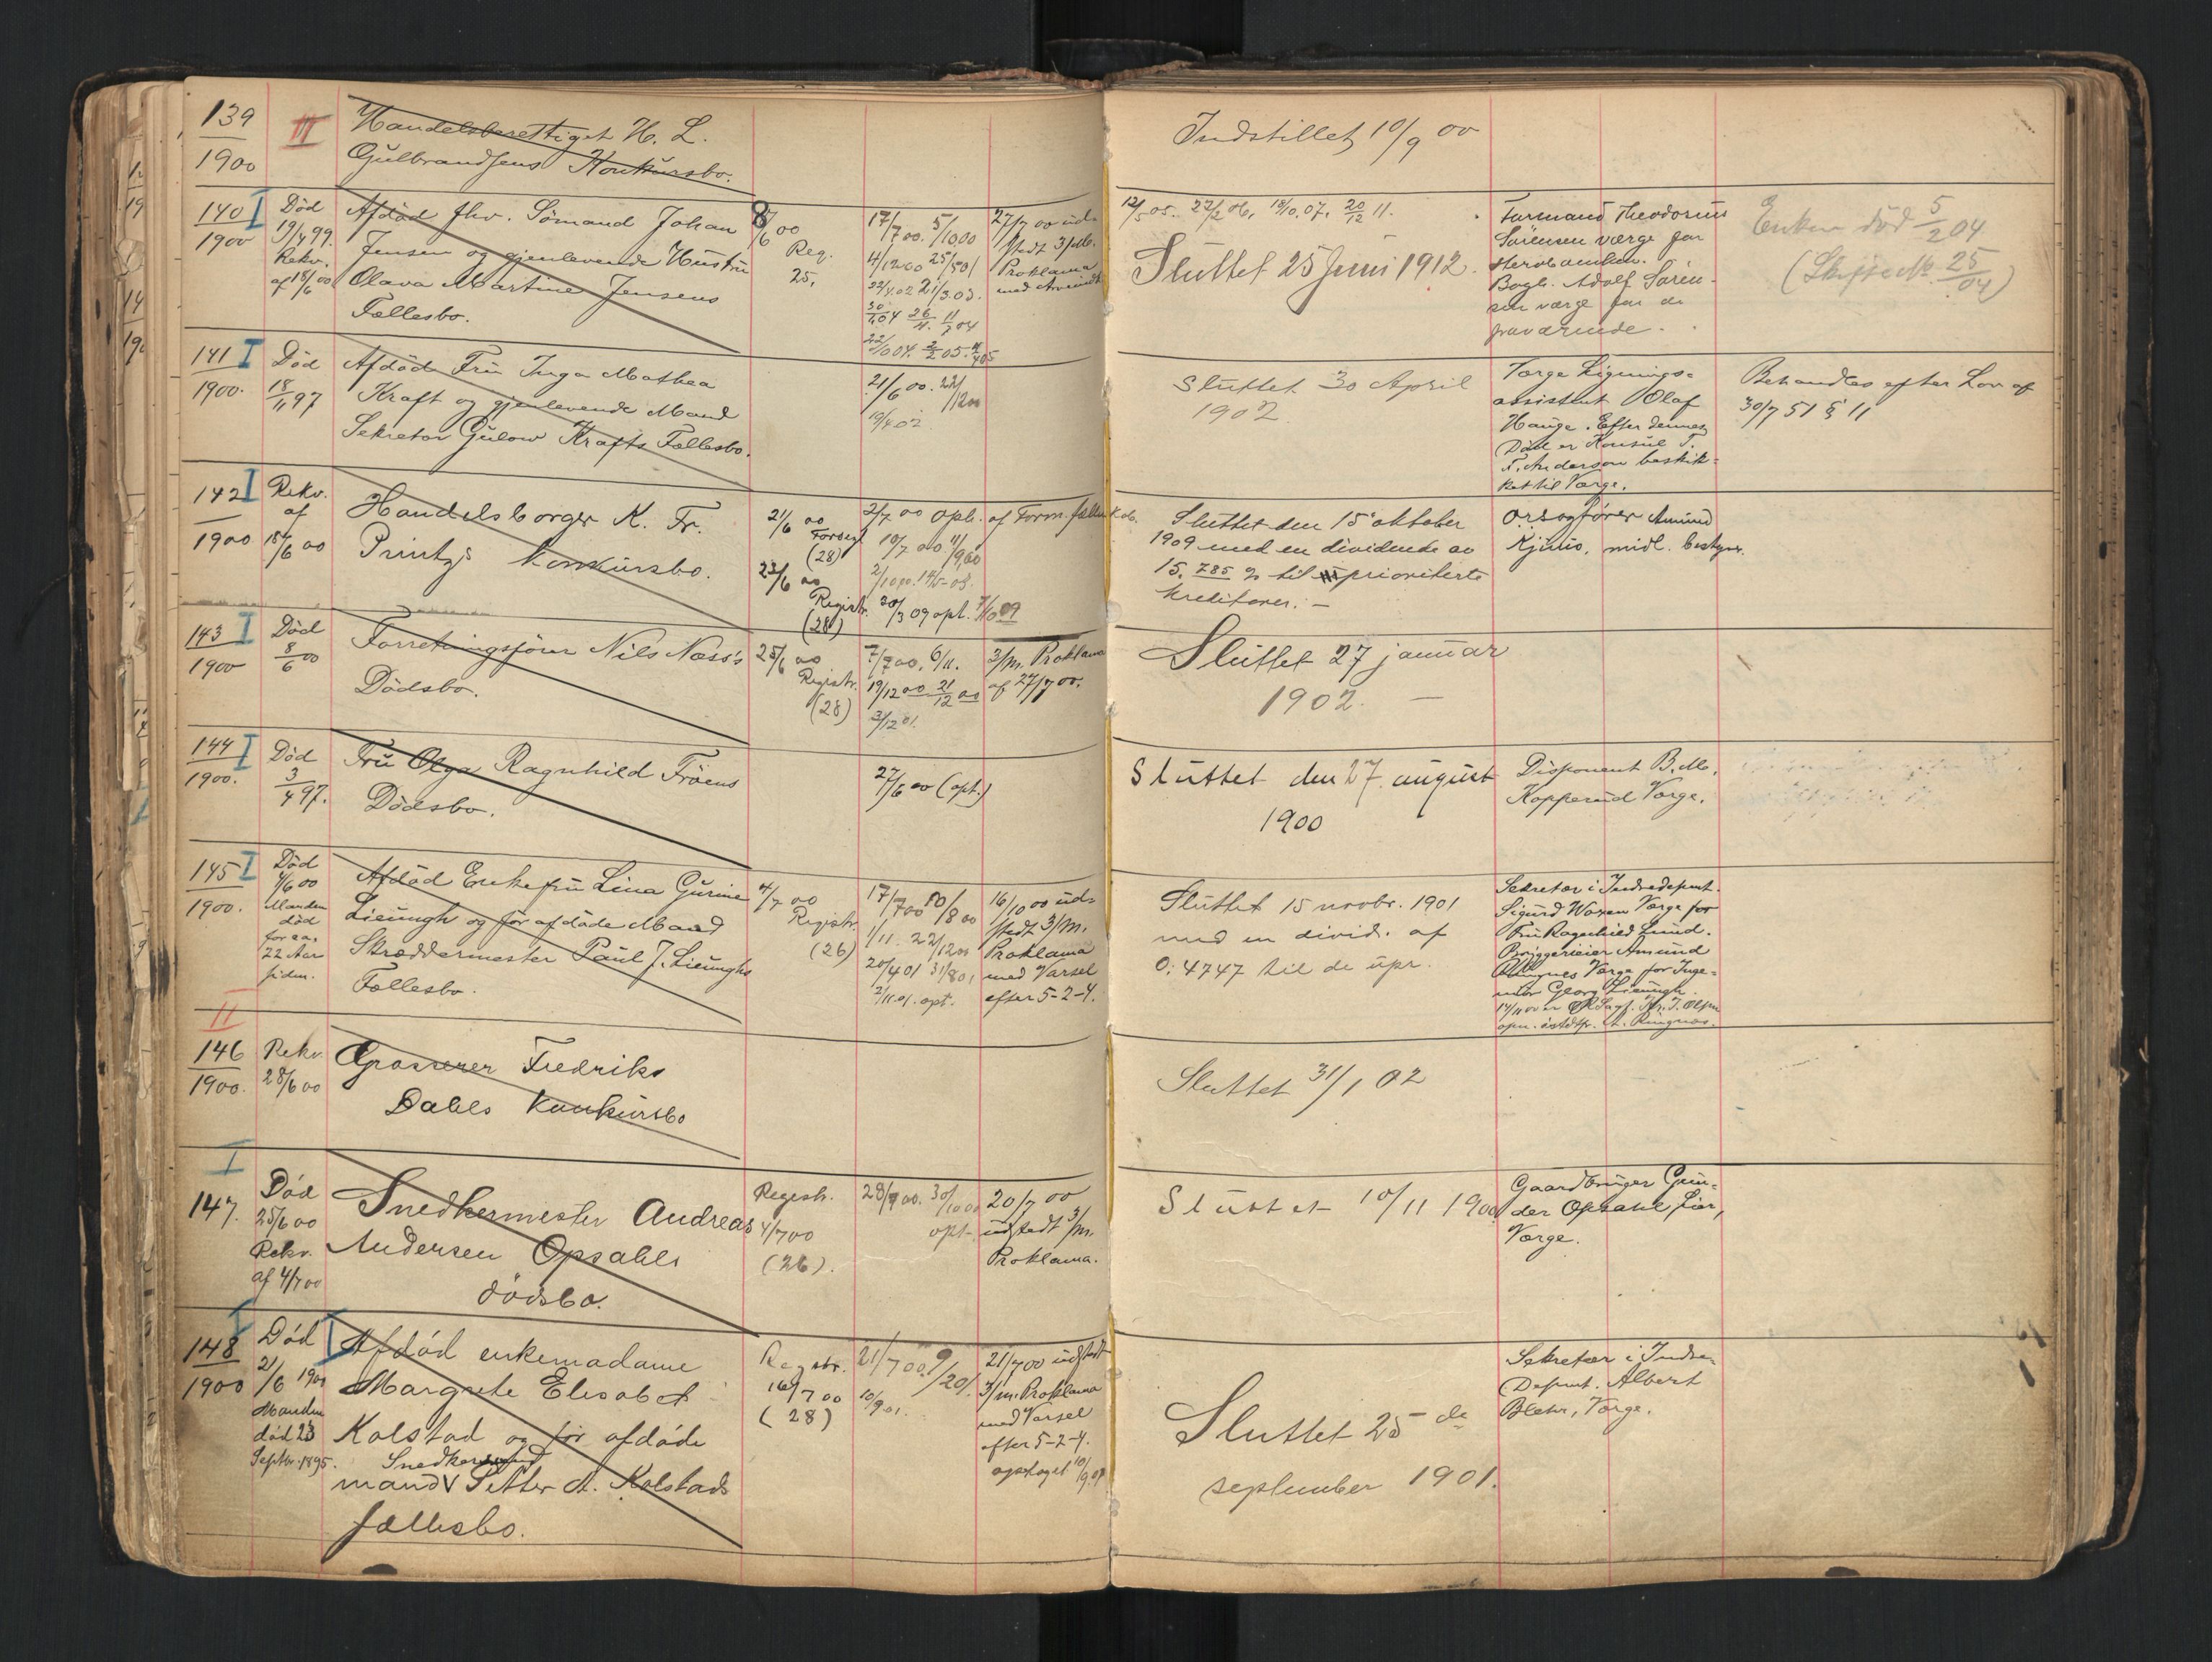 139
1900
III
Handelsberettiget H. L.
Gulbrandsens Konkursbo.
Indstillet 10/9 00
140 I
1900
Død
19/4 99.
Rekv.
af 18/6 00
Afdød fhv. Sømand Johan
Jensen og gjenlevende Hustru
Olava Martine Jensens
Fællesbo.
8/6 00
Reg.
25,
17/7 00. 5/10 00
4/12 00 25/5 01
22/4.02 21/3.03.
26/4. 11/7 04
22/10 04. 2/2 05.
27/7 00 ud-
stedt 3/M.
Proklama
med
12/5 05. 22/2 06. 18/10.07. 20/12 11.
Sluttet 25 Juni 1912.
Formand Theodorius
Sørensen værge for
Bogh. Adolf Søren-
sen værge for de
fraværende.
Enken død 5/2 04
(Skifte No. 25/04)
141 I
1900.
Død
18/11 97
Afdøde Fru Inga Mathea
Kraft og gjenlevende Mand
Sekretær Gulow Krafts Fællesbo.
21/6 00. 22/12 00
19/4 02
Sluttet 30 April
1902.
Værge Lignings-
assistent Olaf
Hauge. Efter dennes
Død er Konsul T.
F. Anderson beskik-
ket til Værge.
Behandles efter Lov af
30/7 51 § 11
142 I
1900
Rekv.
af
18/6 00
Handelsborger K. Fr.
Printz's konkursbo.
21/6 00
Forsegl
(28)
23/6 00
Registr.
(28)
2/7 00 opt. af Form. fællesskab.
10/7 00 11/9 00
2/10 00. 14/5-08.
30/3 09 opt. 7/10 09
Sluttet den 15 oktober
1909 med en dividende av
15.785 % til uprioriterte
kreditorer. —
O.r.sagfører Amund
Kjuus, midl. bestyrer.
143 I
1900
Død
8/6 00
Forretningsfører Nils Næss's
Dødsbo.
25/6 00
Registr.
(28)
7/7 00. 6/11.
19/12 00 21/12 00
3/12 01.
3/m. Proklama
af 27/7 00.
Sluttet 27 januar
1902. —
144 I
1900.
Død
3/4 97.
Fru Olga Ragnhild Frøens
Dødsbo.
27/6 00 (opt.)
Sluttet den 27. august
1900
Disponent B. M.
Kopperud Værge.
145 I
1900.
Død
4/6 00
Manden
død
for ca.
22 Aar
siden.
Afdød Enkefru Lina Gurine
Lieungh og før afdøde Mand
Skræddermester Paul J. Lieunghs
Fællesbo.
4/7 00
Registr.
(26)
17/7 00 10/8 00
1/11. 22/12 00
20/4 01 31/8 01
2/11.01. opt.
16/10 00 ud-
stedt 3/M.
Proklama
med Varsel
efter 5-2-4.
Sluttet 15 novbr. 1901
med en divid. af
0,4747 til de upr.
Sekretær i Indredepmt.
Sigurd Woxen Værge for
Fru Ragnhild Lund.
Bryggerieier Amund
Ringnes Værge for Inge-
niør Georg Lieungh.
14/11 00 er O.R.Sagf. J. Olsen
opn. istedfr. A. Ringnes.
II
146
1900.
Rekv.
28/6 00
Grosserer Fredriks
Dahls konkursbo
Sluttet 31/1 02
I
147.
Død
25/6 00
Rekv.
af 4/7 00
Snedkermester Andreas
Andersen Opsahls
dødsbo.
Registr.
4/7 00
(26).
28/9 00. 30/10 00
opt.
20/7 00
udstedt 3/m.
Proklama.
Sluttet 10/11 1900
Gaardbruger Gun-
der Opsahl, Lier,
Værge.
I
148
1900
Død
21/6 1900
Manden
død 23
Septbr. 1895.
Afdød enkemadame
Margrete Elisabet
Kolstad og før afdøde
Snedkersvend
mand V Petter A. Kolstads
fællesbo.
Registr.
16/7 00
(28)
21/7 00.
10/9 01.
21/7 00 udstedt
3/m. Proklama
med Varsel
efter 5-2-4.
Sluttet 25 de
september 1901.
Sekretær i Indre-
Depmt. Albert
Blehr, Værge.